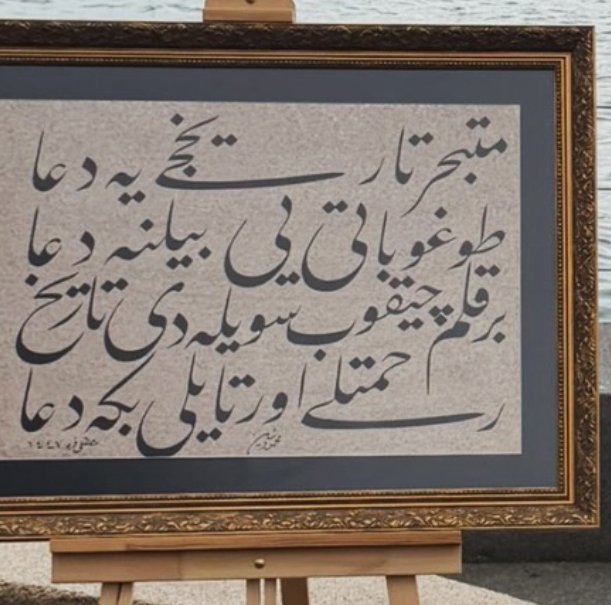 متبحر تاریخجی یه دعا
طوغو باتی یی بیلنه دعا
بر قلم چیقوب سویله دی تاریخ
رحمتله اورتایلی بکه دعا
١٤٤٧